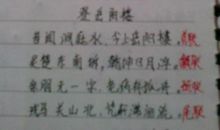 登岳阳楼
昔闻洞庭水,今上岳阳楼。首联
吴楚东南坼,乾坤日月浮。颔联
亲朋无一字,老病有孤舟。颈联
戎马关山北,凭轩涕泗流。尾联